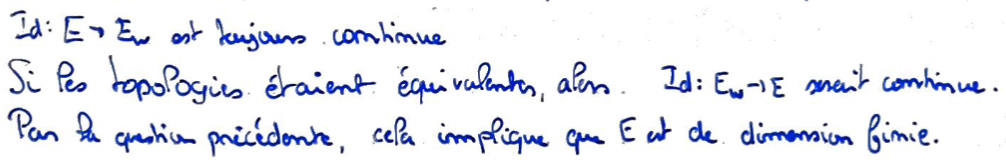 Id: E → E_w est toujours continue
Si les topologies étaient équivalentes, alors Id: E_w → E serait continue.
Par la question précédente, cela implique que E est de dimension finie.